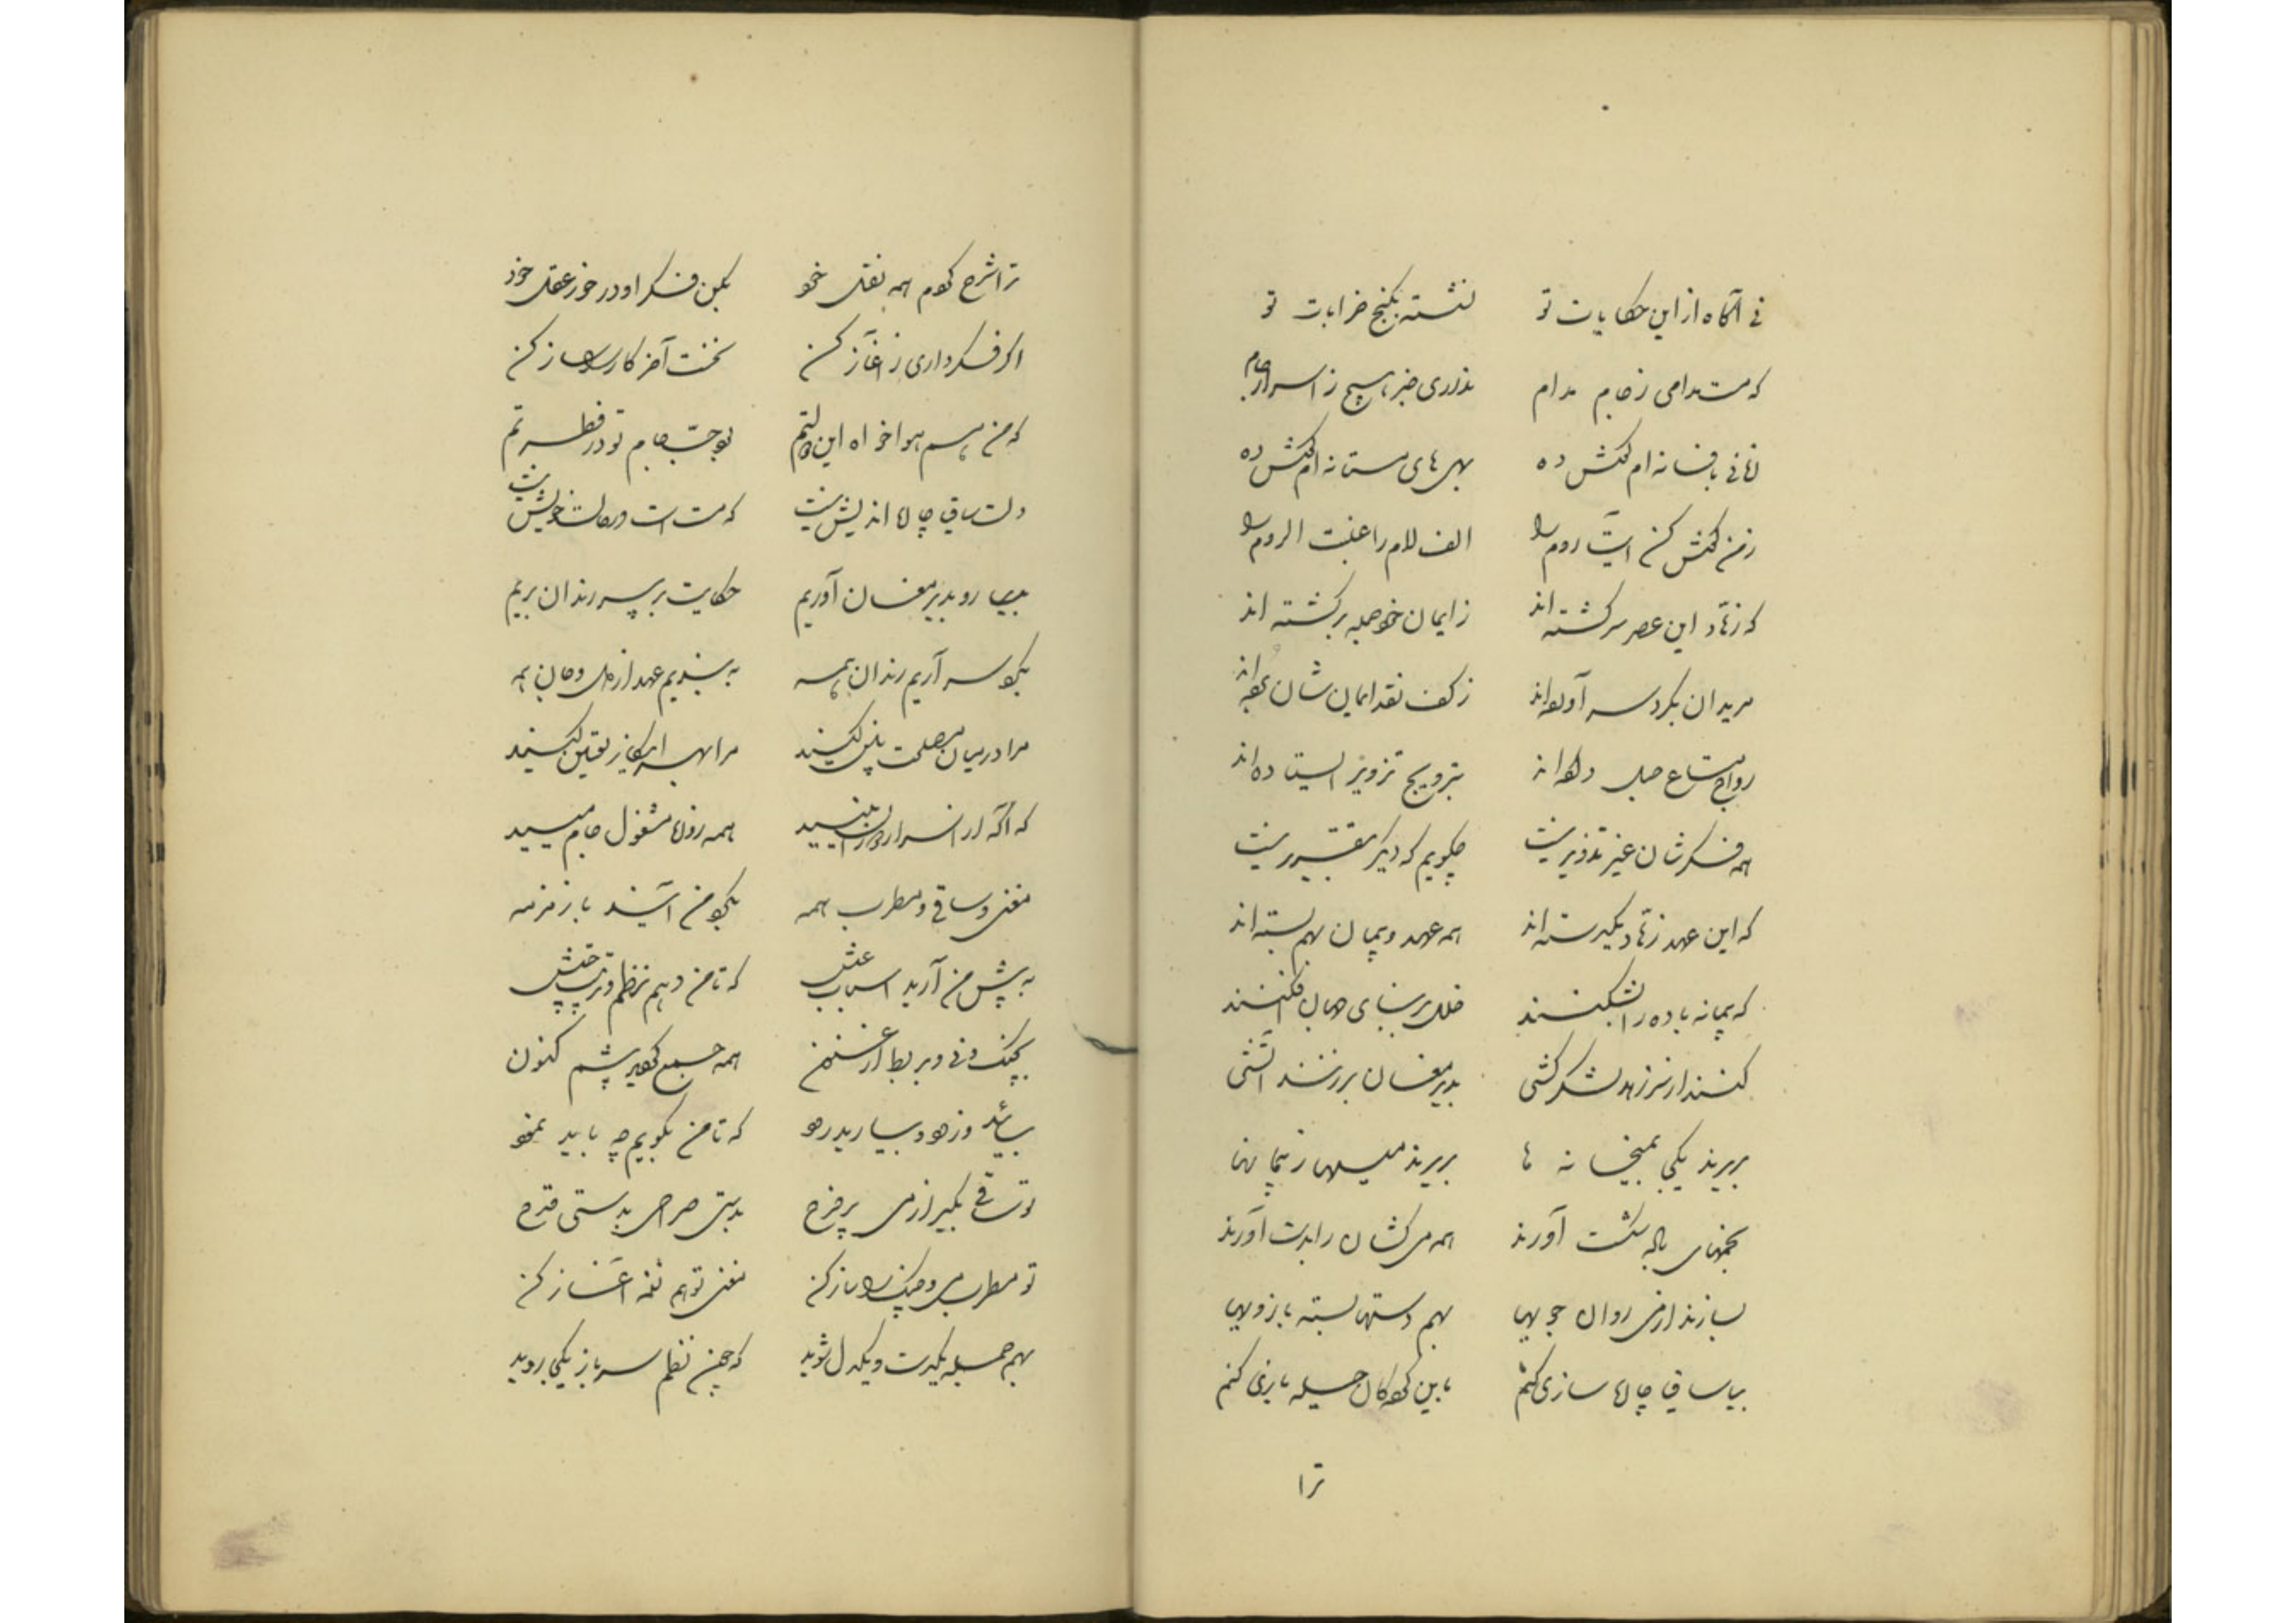 نی آگاه از این حکایات تو نشسته بکنج خرابات تو
که مست مدامی ز جام مدام نداری خبر هیچ ز اسرار جام
زمانی بافسانه ام گوش ده بهی های مستانه ام گوش ده
ز من گوش کن آیت روم را الف لام را غلبت الروم را
که زهاد این عصر سرگشته اند ز ایمان خود جمله برگشته اند
مریدان بگرد سر آورده اند ز کف نقد ایمان شان برده اند
رواج متاع حیل داده اند بترویج تزویر ایستاده اند
همه فکرشان غیر تذویر نیست چگویم که دیگر بتقریر نیست
که این عهد زهاد یکبر سته اند همه عهد و پیمان بهم بسته اند
که پیمانه باده را بشکنند خلل بر بنای جهان افکنند
کنند از سر زهد لشکر کشی بدیر مغان بر زنند آتشی
بریزند یکجا بمیخانه ها بریزند میها ز پیمانها
بخمهای باله شکست آورند همه می کشان را بدست آورند
بسازند از می روان جویها بهم دستها بسته بازویها
بیا ساقی چاره سازی کنم باین کودکان حیله بازی کنم
ترا
ترا شرح گویم همه نقل خود بکن فکر او در خور عقل خود
اگر فکر داری ز آغاز کن نخست آخر کار را ساز کن
که من هم هوا خواه این دولتم بود حب جام تو در فطرتم
دلت ساقی چاره اندیش نیست که مست است و در حالت خویش نیست
بیا رو بدیر مغان آوریم حکایت بر پیر رندان بریم
بگو سر آریم رندان همه به بندیم عهد از دل و جان همه
مرا در میان مصلحت بین کنید مرا بهر این کار تعیین کنید
که آگه از اسرار دوران نیید همه روزها مشغول جام میید
مغنی و ساقی و مطرب همه بگو من آیند با زمزمه
به پیش من آرید اسباب عیش که تا من دهم نظم و ترتیب جیش
بچنگ و نی و بربط و ارغنون همه جمع گردید پیشم کنون
بیائید و زود و بیارید رود که تا من بگویم چه باید نمود
تو ساقی بگیر از می پر فرح بدستی صراحی بدستی قدح
تو مطرب نی و چنگ را ساز کن مغنی تو هم نغمه آغاز کن
بهم جمله یکدست و یکدل شوید که چون نظم سرباز یکجا روید